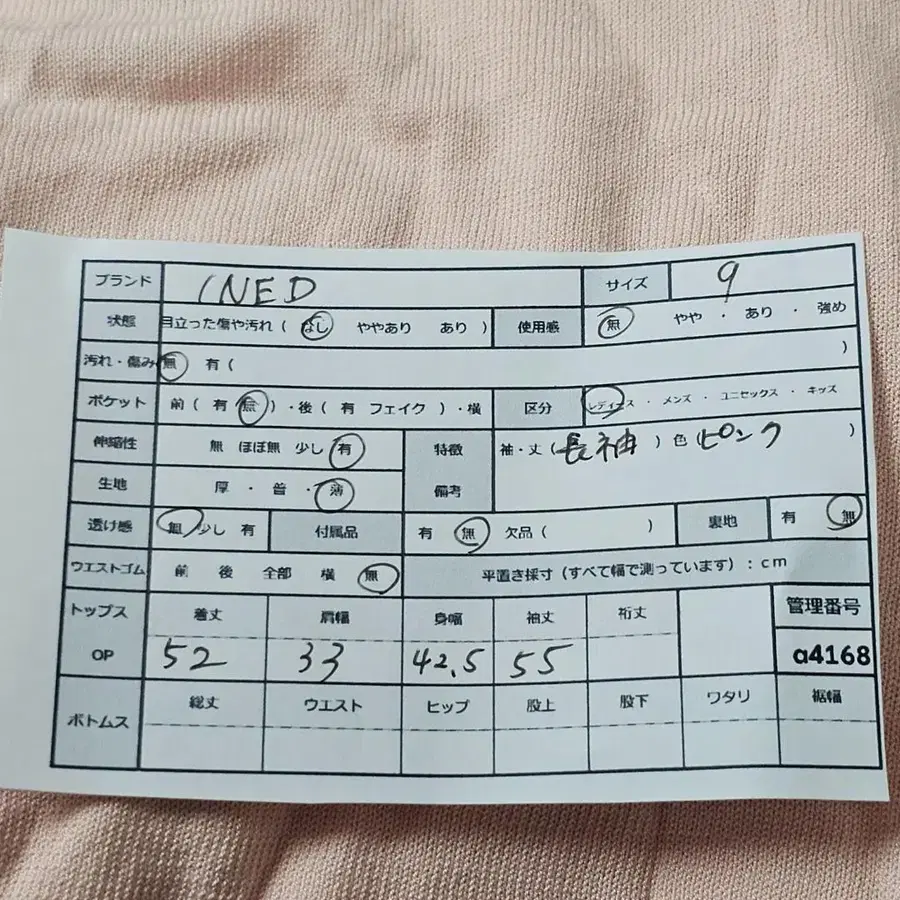 ブランド INED サイズ 9
状態 目立った傷や汚れ ( なし ややあり あり ) 使用感 無 ・ やや ・ あり ・ 強め
汚れ・傷み 無 有 ( )
ポケット 前 ( 有 無 ) ・後 ( 有 フェイク ) ・横 区分 レディース ・ メンズ ・ ユニセックス ・ キッズ
伸縮性 無 ほぼ無 少し 有 特徴 袖・丈 (長袖 ) 色 (ピンク )
生地 厚 ・ 普 ・ 薄 備考
透け感 無 少し 有 付属品 有 無 欠品 ( ) 裏地 有 無
ウエストゴム 前 後 全部 横 無 平置き採寸 (すべて幅で測っています) : cm
トップス 着丈 肩幅 身幅 袖丈 裄丈 管理番号
OP 52 33 42.5 55 a4168
ボトムス 総丈 ウエスト ヒップ 股上 股下 ワタリ 裾幅